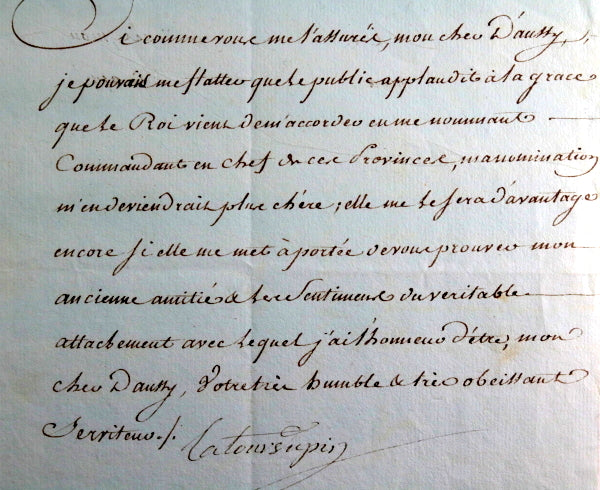 Si comme vous me l'assurés, mon cher D'aussy,
je pouvais me flatter que le public applaudit à la grace
que le Roi vient de m'accorder en me nommant
Commandant en chef de ces Provinces, ma nomination
m'en deviendrait plus chére ; elle me le sera d'avantage
encore si elle me met à portée de vous prouver mon
ancienne amitié & les Sentimens du veritable
attachement avec lequel j'ai l'honneur d'étre, mon
cher Daussy, Votre très humble & très obeissant
Serviteur ./.
Latourdupin